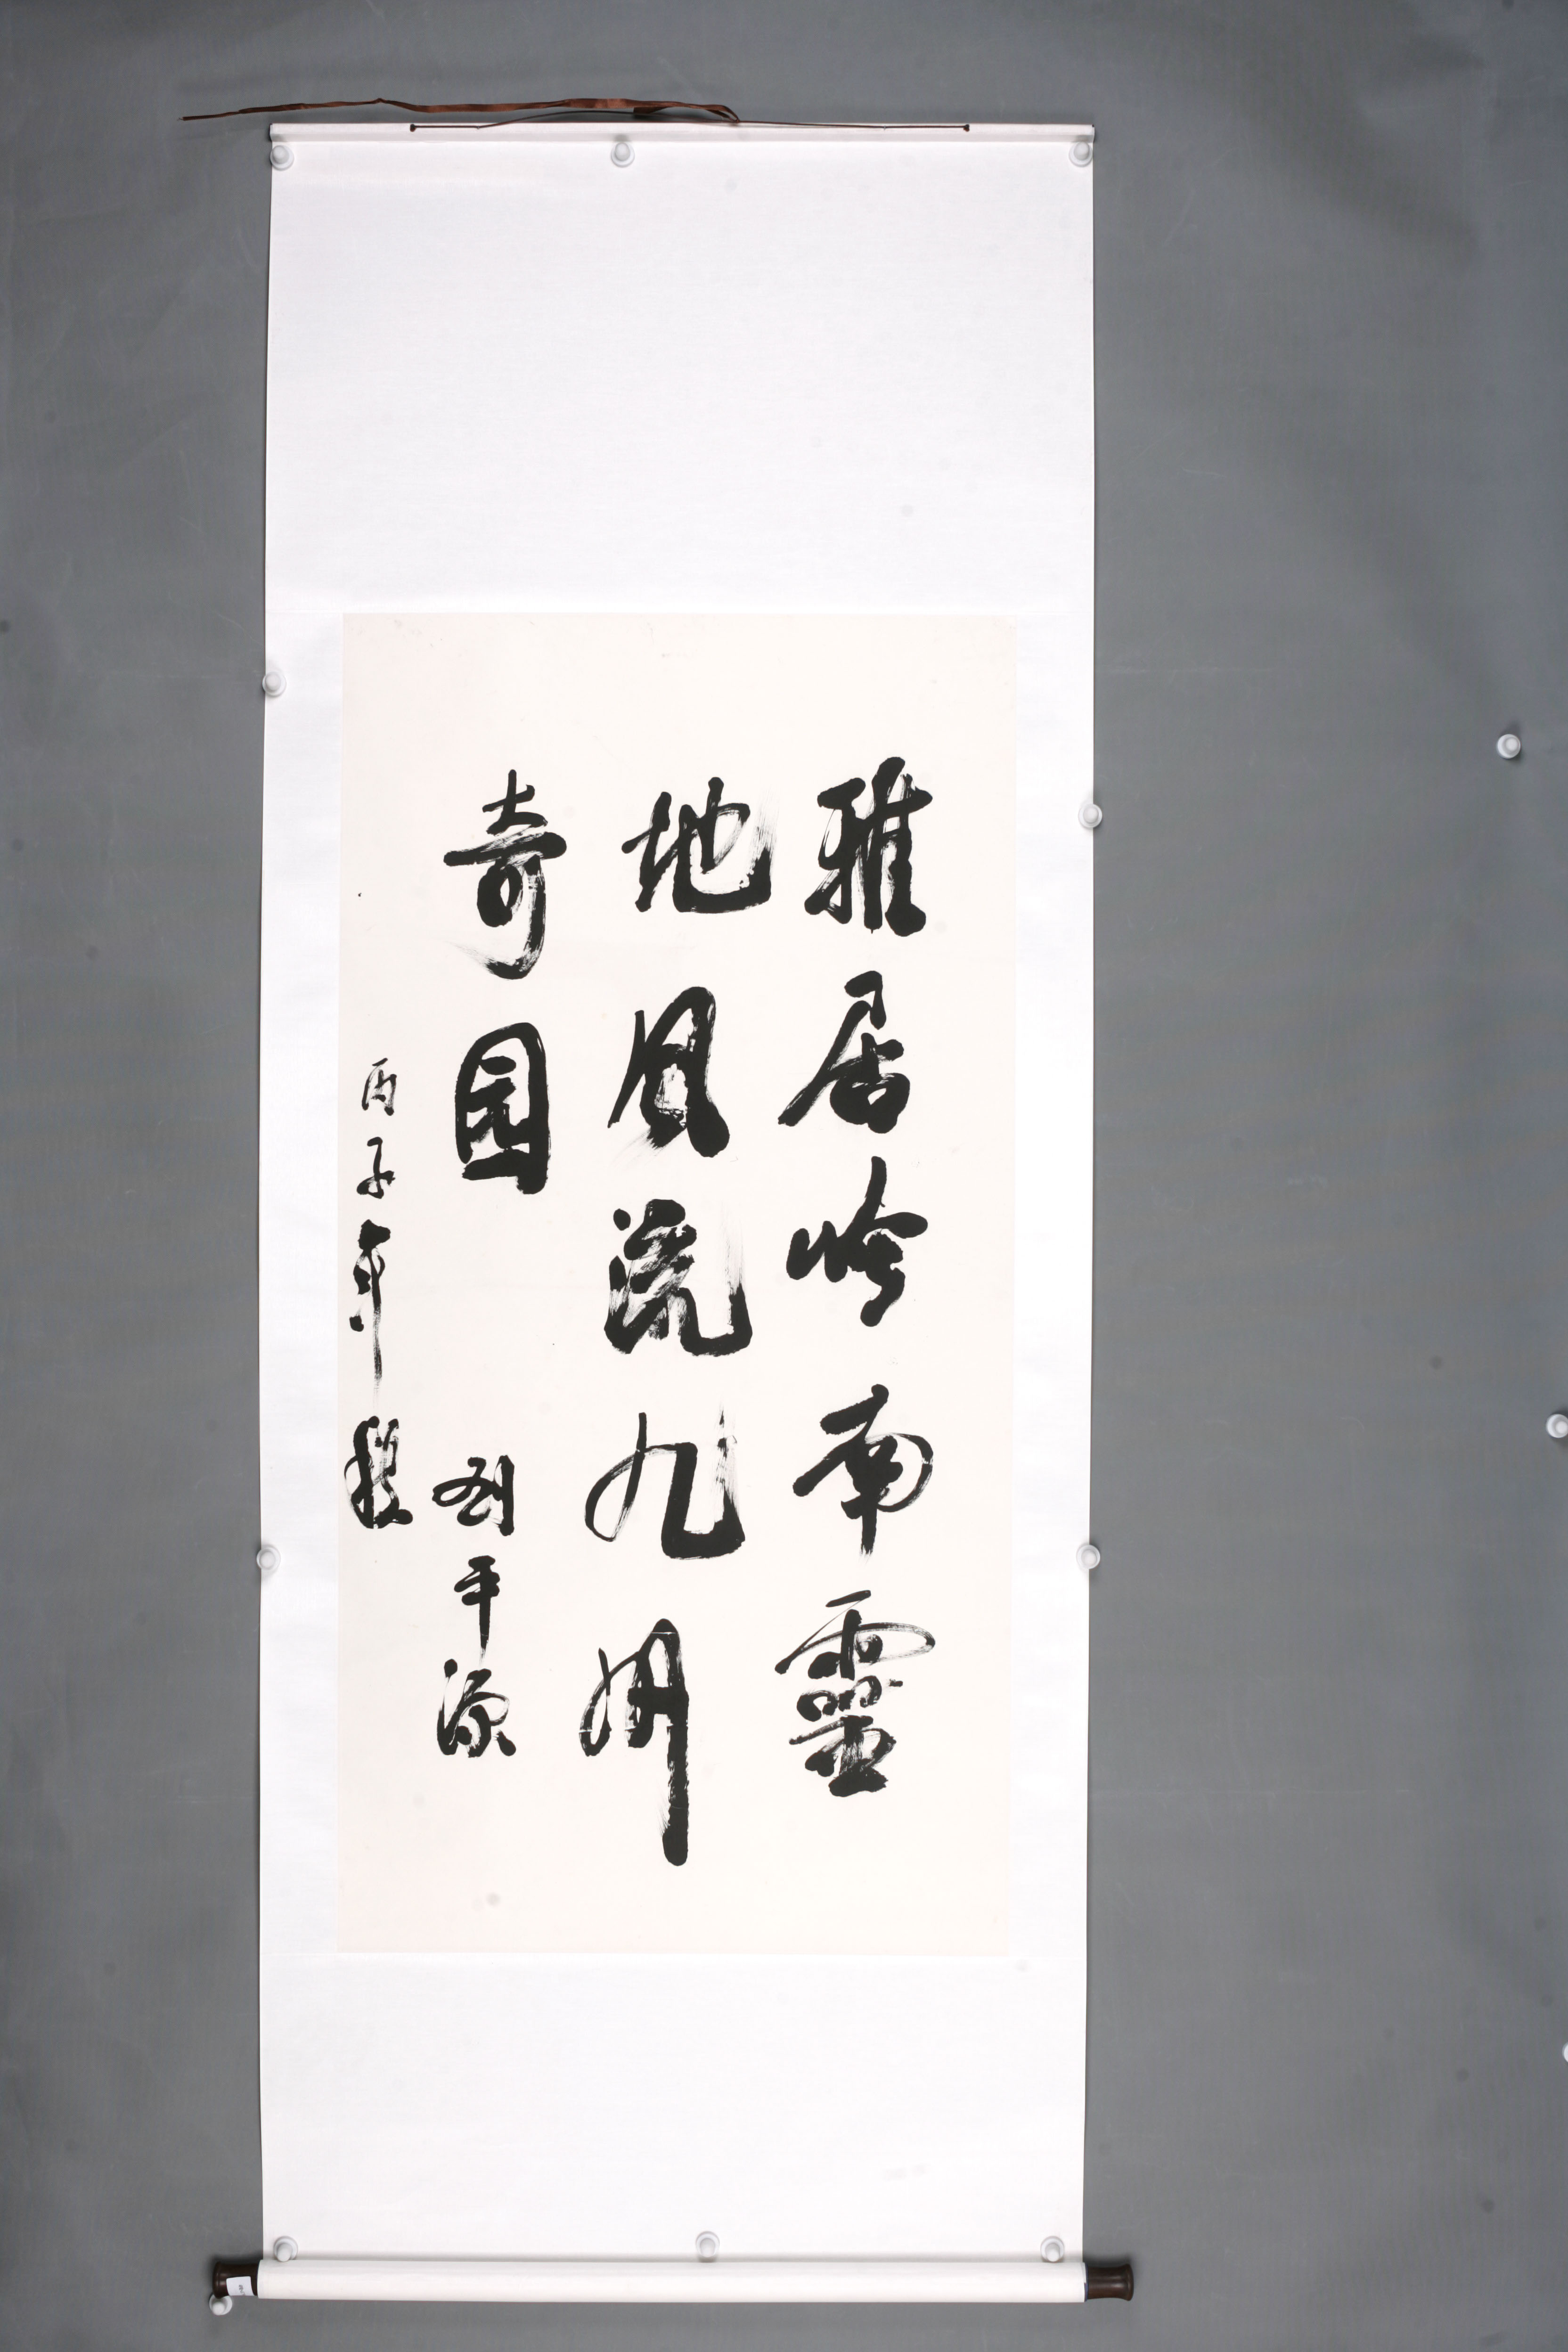 雅居吟南靈
地风流九州
奇园
刘平源
丙子年秋